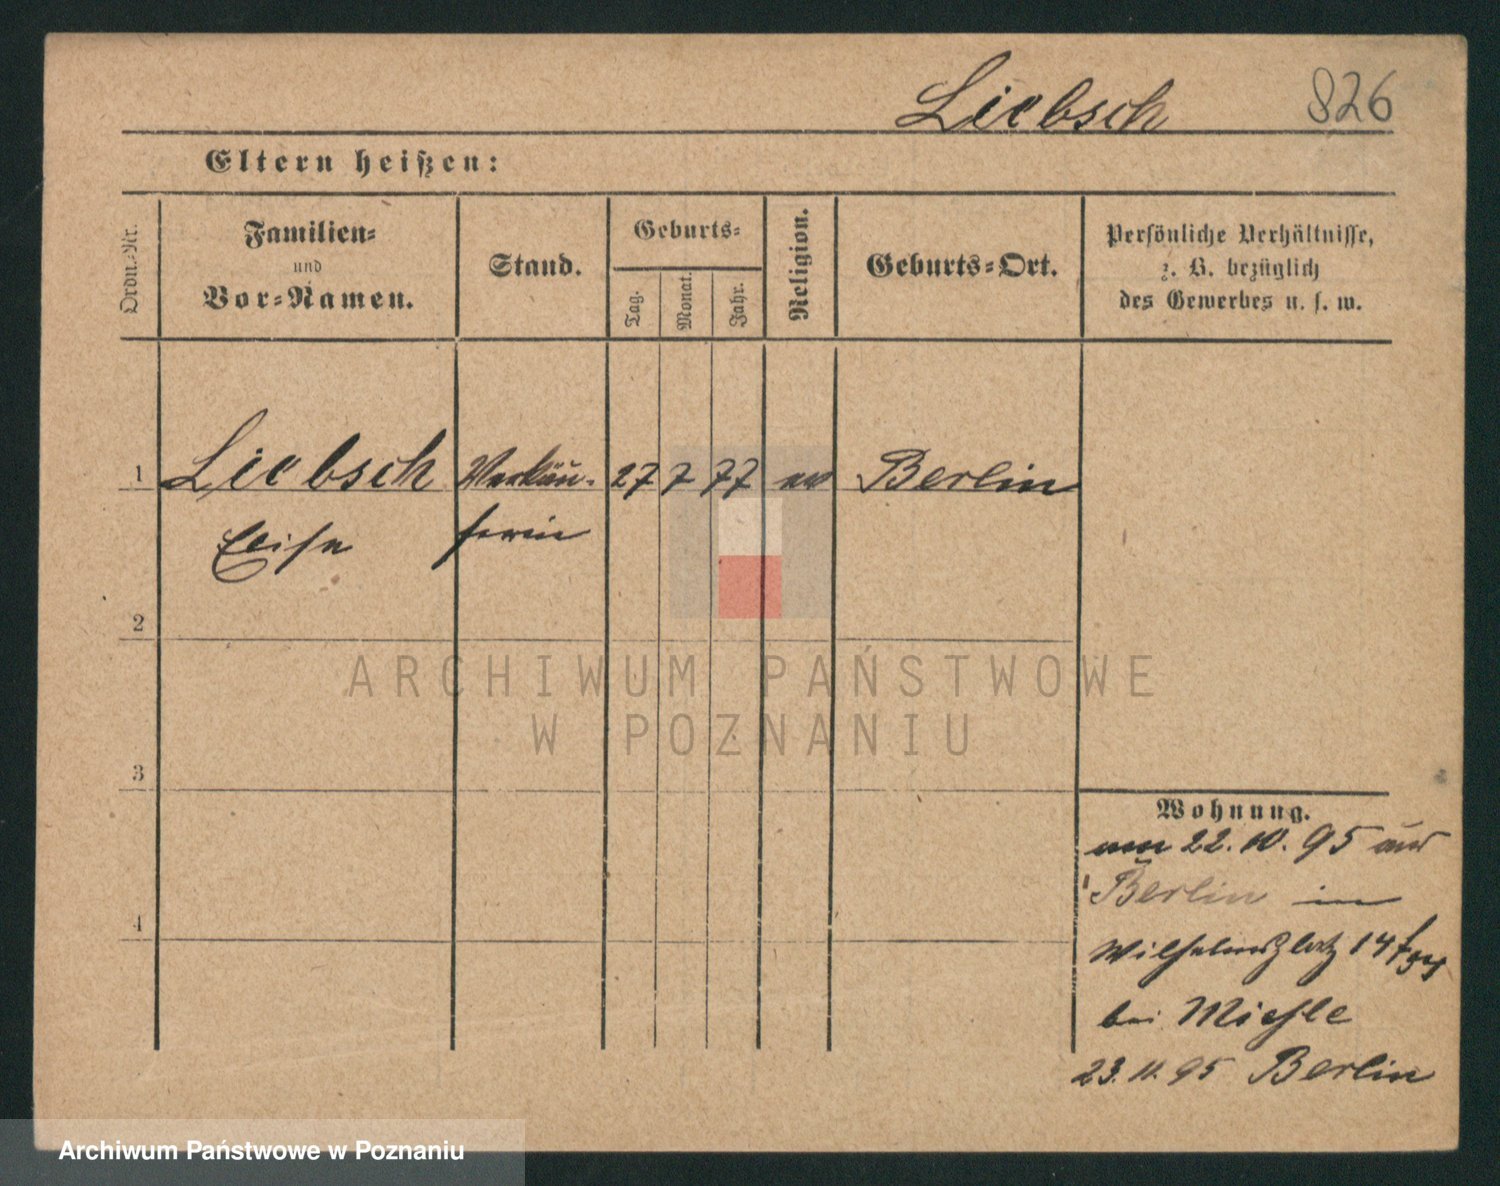 Liebsch 826
Eltern heißen:
Ordn.-Nr.
Familien-
und
Vor-Namen.
Stand.
Geburts-
Tag.
Monat.
Jahr.
Religion.
Geburts-Ort.
Persönliche Verhältnisse,
z. B. bezüglich
des Gewerbes u. s. w.
1 Liebsch Verkäu- 27 7 77 ev Berlin
Elise ferin
2
ARCHIWUM PAŃSTWOWE
W POZNANIU
3
Wohnung.
22. 10. 95 aus
4
Berlin in
Wilhelmsplatz 14
bei Miehle
23. 11. 95 Berlin
Archiwum Państwowe w Poznaniu